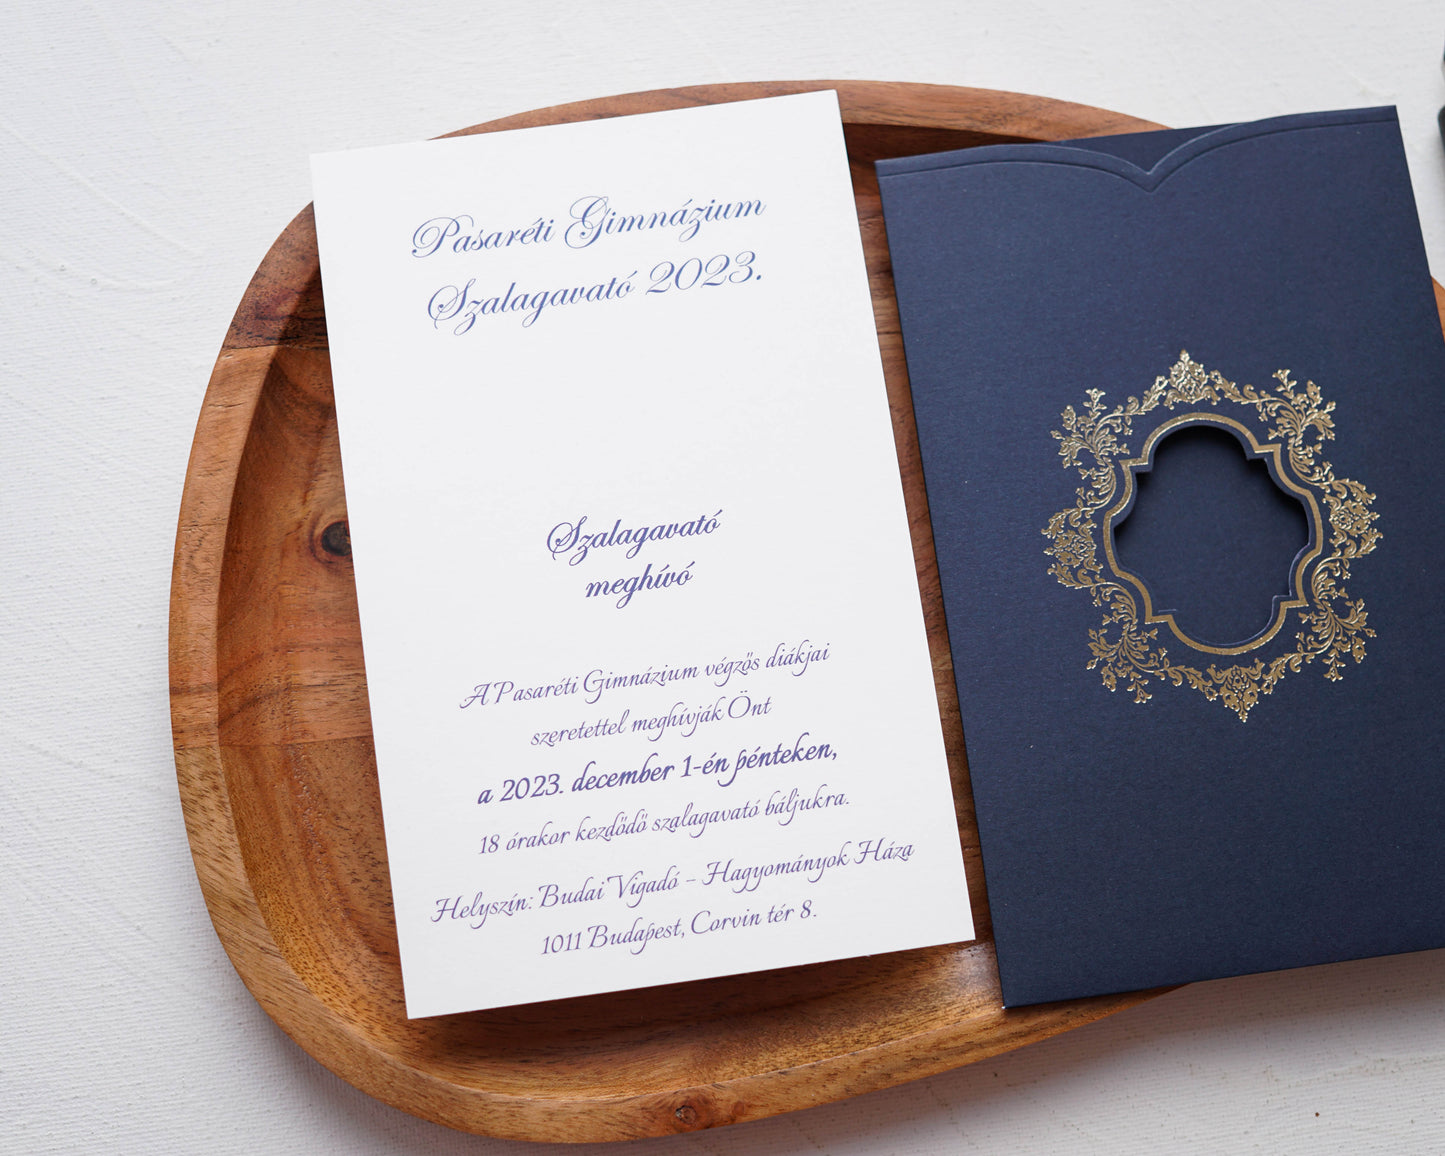 Pasaréti Gimnázium
Szalagavató 2023.
Szalagavató
meghívó
A Pasaréti Gimnázium végzős diákjai
szeretettel meghívják Önt
a 2023. december 1-én pénteken,
18 órakor kezdődő szalagavató báljukra.
Helyszín: Budai Vigadó - Hagyományok Háza
1011 Budapest, Corvin tér 8.